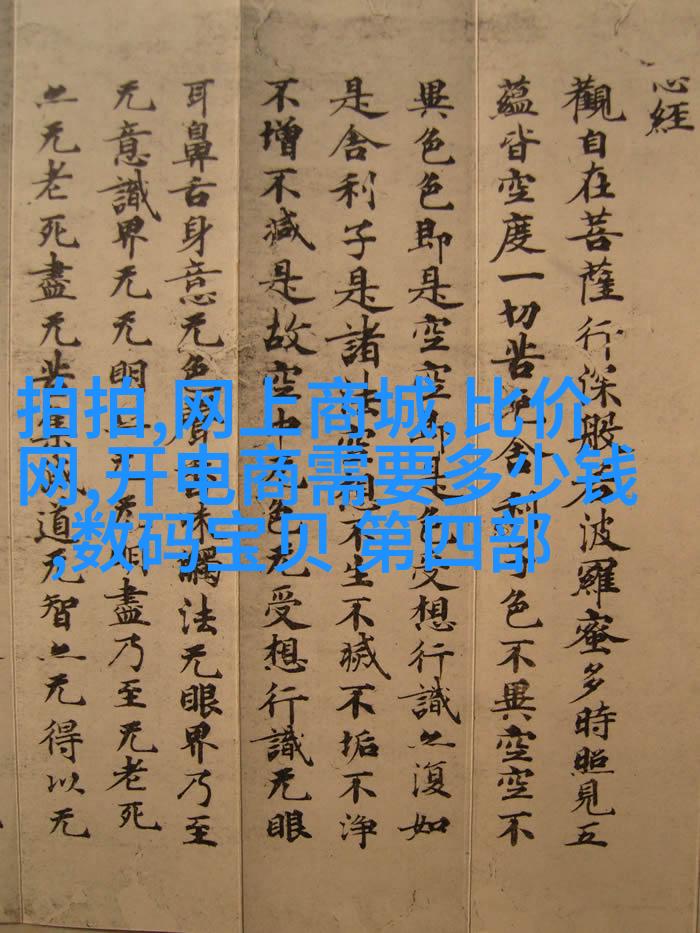 心經
觀自在菩薩行深般若波羅蜜多時照見五
蘊皆空度一切苦厄舍利子色不異空空不
異色色即是空空即是色受想行識亦復如
是舍利子是諸法空想不生不滅不垢不淨
不增不減是故空中无色无受想行識无眼
耳鼻舌身意无色聲香味觸法无眼界乃至
无意識界无无明亦无无明盡乃至无老死
亦无老死盡无苦集滅道无智亦无得以无
拍拍,网上商城,比价
网,开电商需要多少钱
,数码宝贝 第四部